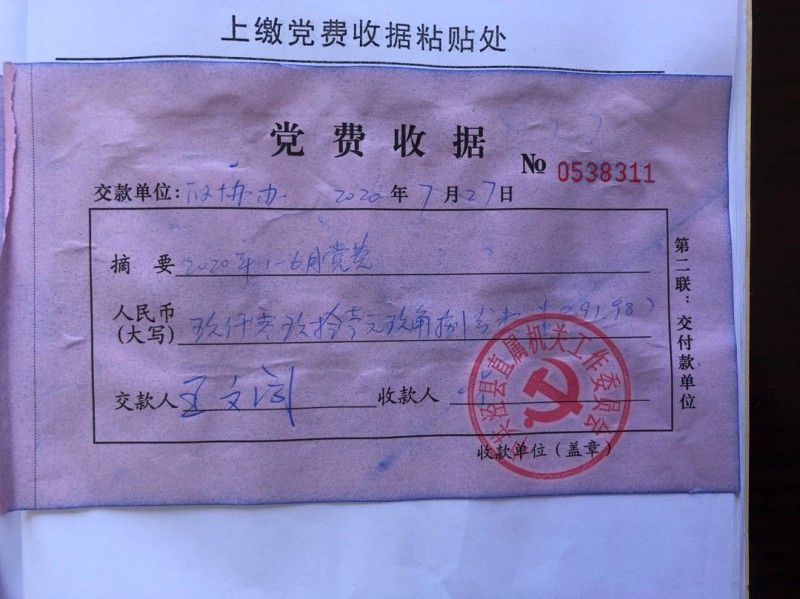 上缴党费收据粘贴处
党费收据
№ 0538311
交款单位: 政协办 2020年7月27日
摘要 2020年1-6月党费
人民币
(大写) 玖仟零玖拾壹元玖角捌分
交款人 王文 收款人
收款单位(盖章)
第二联：交付款单位
县直属机关工作委员会